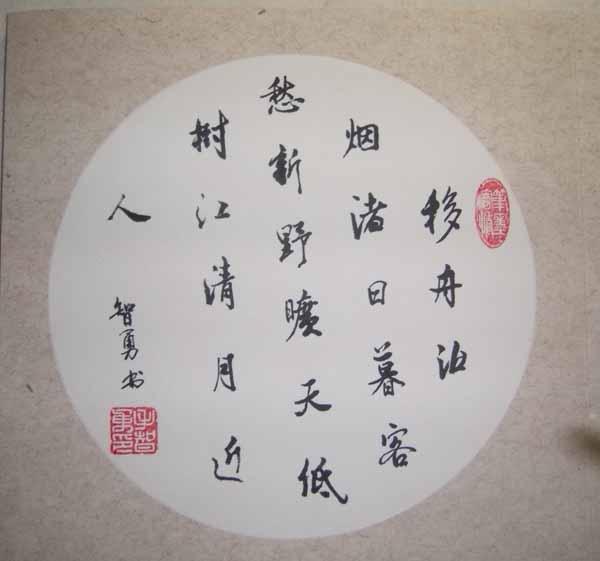 移舟泊
烟渚日暮客
愁新野旷天低
树江清月近
人
智勇书